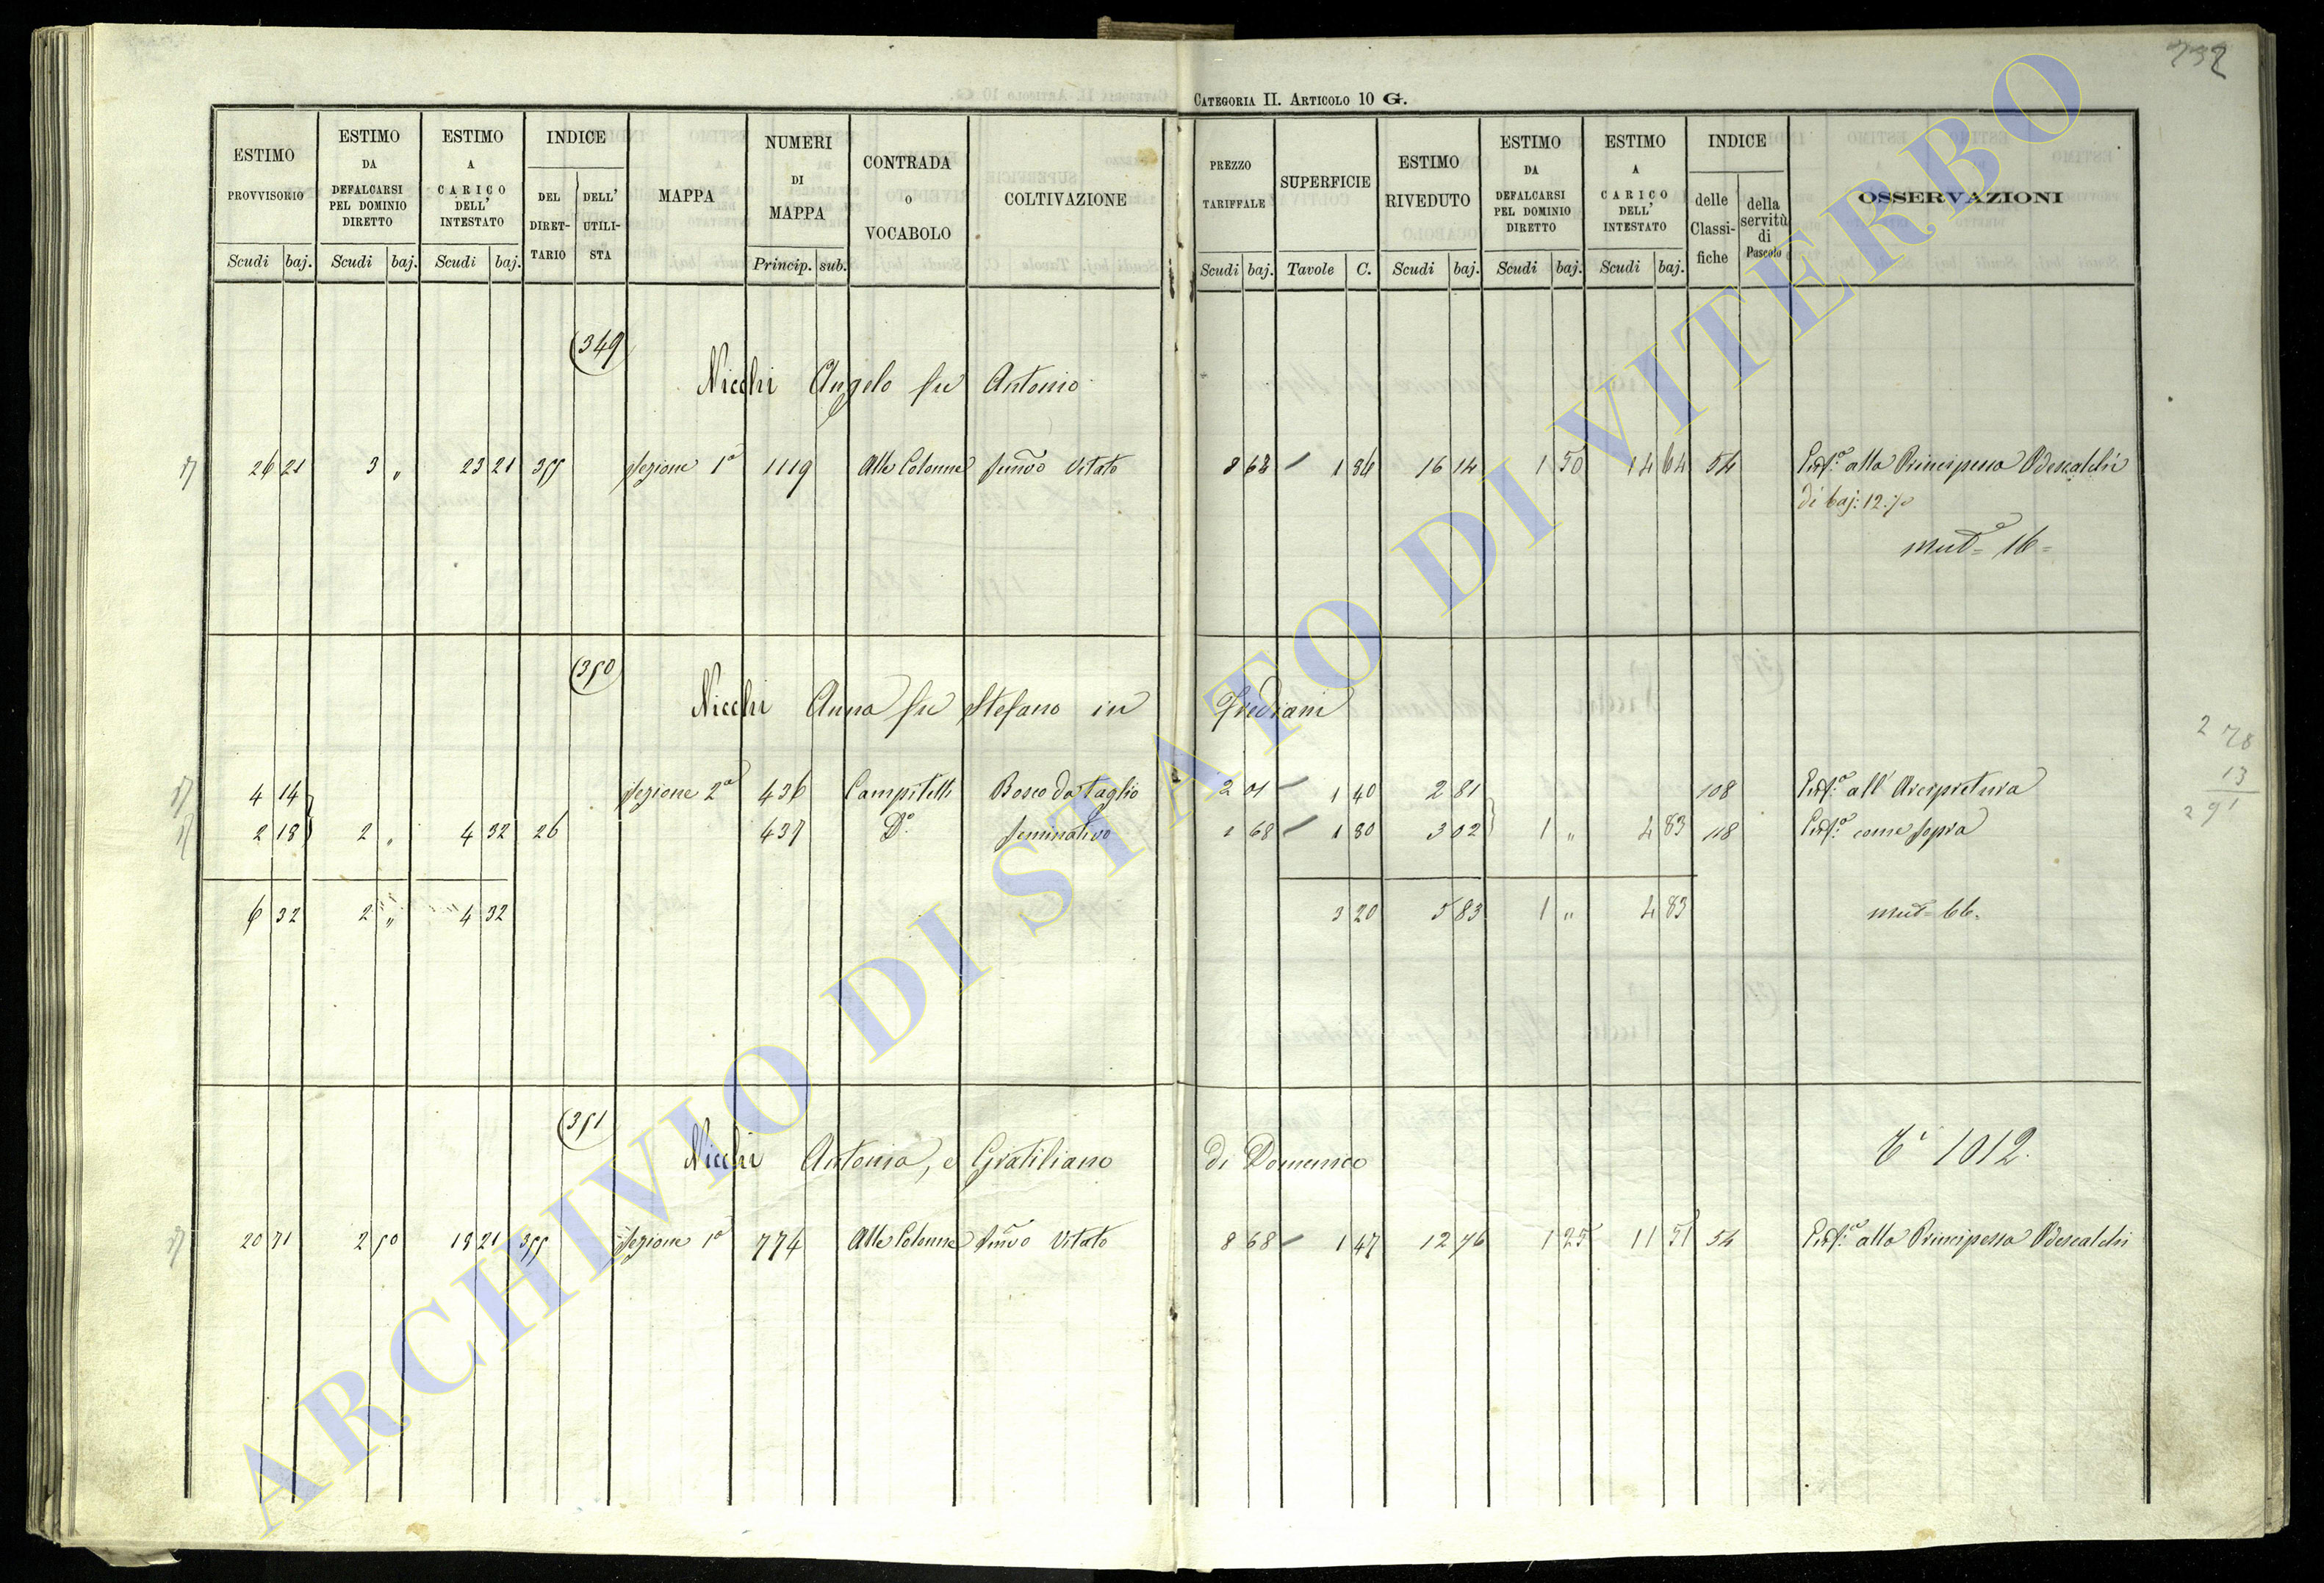 732
CATEGORIA II. ARTICOLO 10 G.
ESTIMO PROVVISORIO Scudi baj.
ESTIMO DA DEFALCARSI PEL DOMINIO DIRETTO Scudi baj.
ESTIMO A CARICO DELL' INTESTATO Scudi baj.
INDICE DEL DIRET-TARIO DELL' UTILI-STA
MAPPA
NUMERI DI MAPPA Princip. sub.
CONTRADA O VOCABOLO
COLTIVAZIONE
PREZZO TARIFFALE Scudi baj.
SUPERFICIE Tavole C.
ESTIMO RIVEDUTO Scudi baj.
ESTIMO DA DEFALCARSI PEL DOMINIO DIRETTO Scudi baj.
ESTIMO A CARICO DELL' INTESTATO Scudi baj.
INDICE delle Classi-fiche della servitù di Pascolo
OSSERVAZIONI
349
Nicchi Angelo fu Antonio
26 21 3 " 23 21 355 Sezione 1a 1119 Alle Colonne Semvo Vitato 8 68 1 86 16 14 1 50 14 64 54 alla Principessa Odescalchi
di baj: 12
mut= 16=
350
Nicchi Anna fu Stefano in Frediani
4 14 Sezione 2a 436 Campitelli Bosco da taglio 2 01 1 40 2 81 108 all' Arcipretura
2 18 2 " 4 32 26 437 Do. Seminativo 1 68 1 80 3 02 1 " 4 83 118 come sopra
6 32 2 " 4 32 3 20 5 83 1 " 4 83 mut= 66.
2 78
13
2 91
351
Nicchi Antonia, e Gratiliano di Domenico 1012.
20 71 2 50 18 21 355 Sezione 1a 774 Alle Colonne Semvo Vitato 8 68 1 47 12 76 1 25 11 51 54 alla Principessa Odescalchi
ARCHIVIO DI STATO DI VITERBO